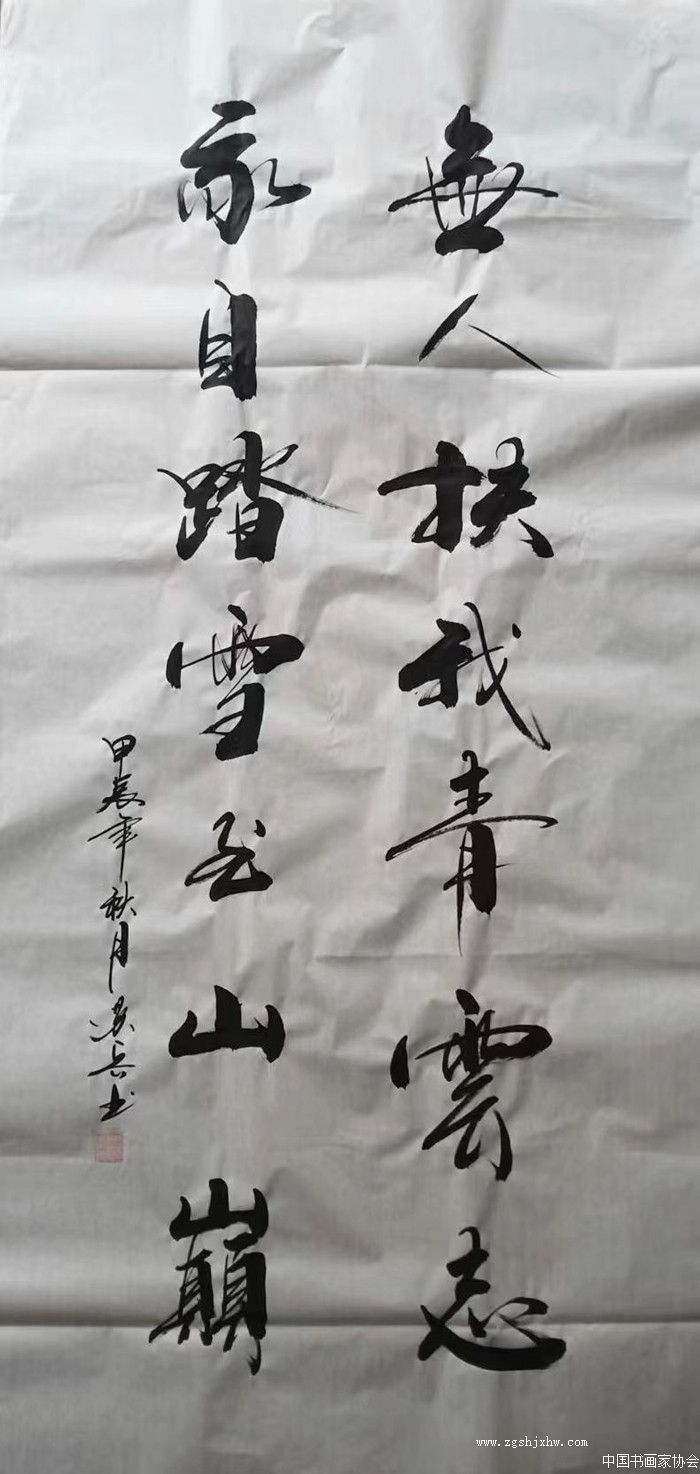 無人扶我青雲志
我自踏雪至山巔
甲辰年秋月兵书
www.zgshjxhw.com
中国书画家协会